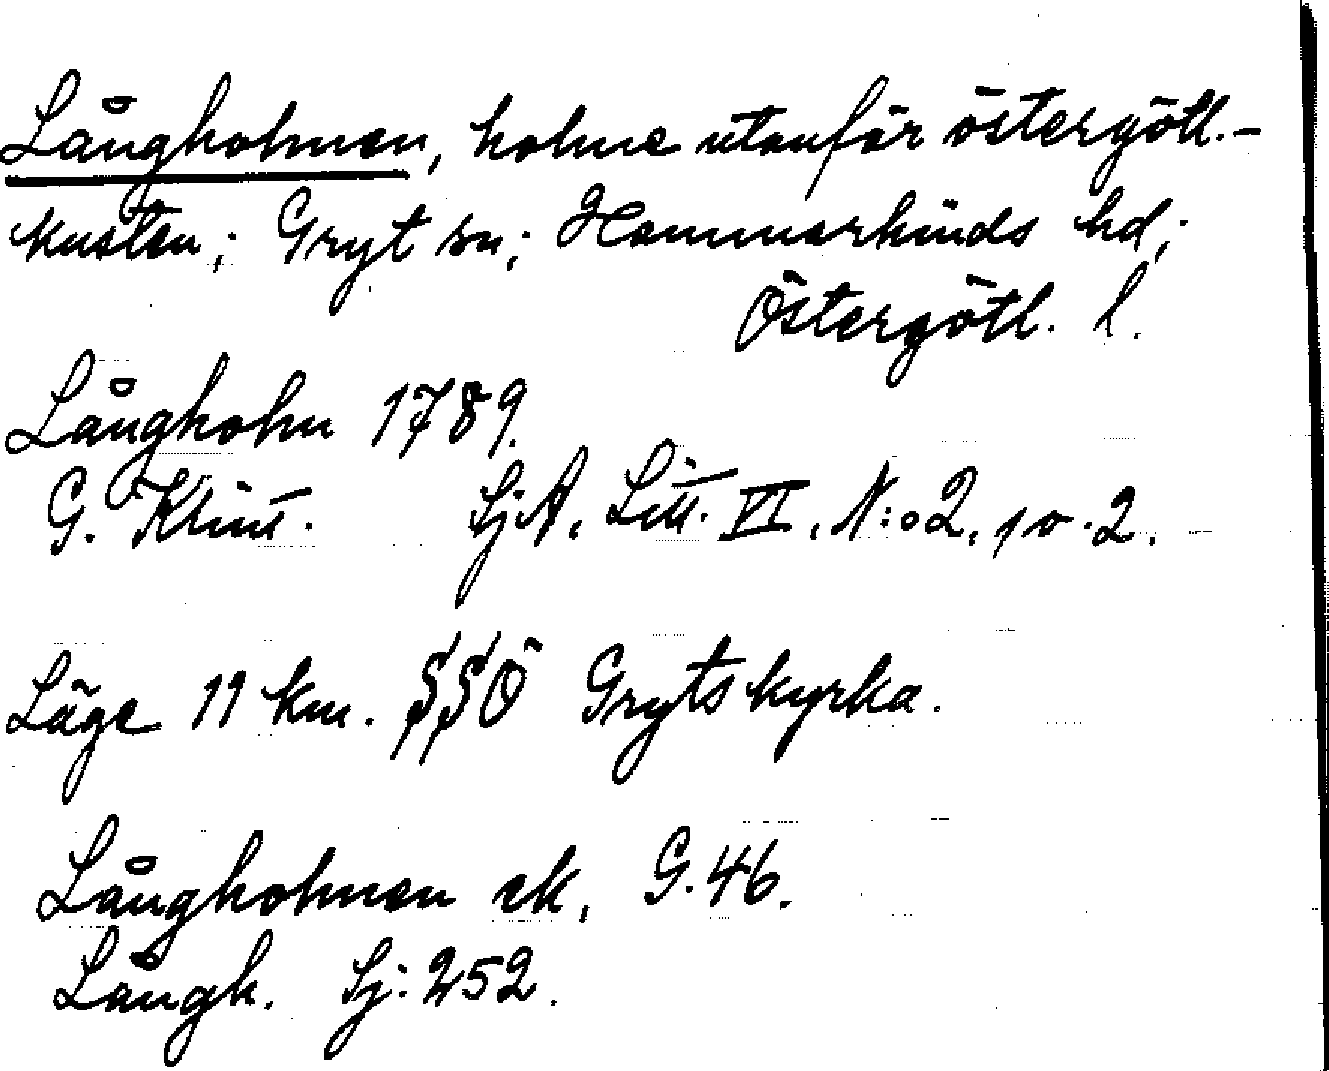 Långholmen, holme utanför östergötl.-
kusten; Gryt sn; Hammarkinds hd;
Östergötl. l.
Långholm 1789.
G. Klint. SjA, Litt. VI, N:o 2, pv. 2.
Läge 11 km. SSÖ Gryts kyrka.
Långholmen ek, G. 46.
Långh. Sj: 252.